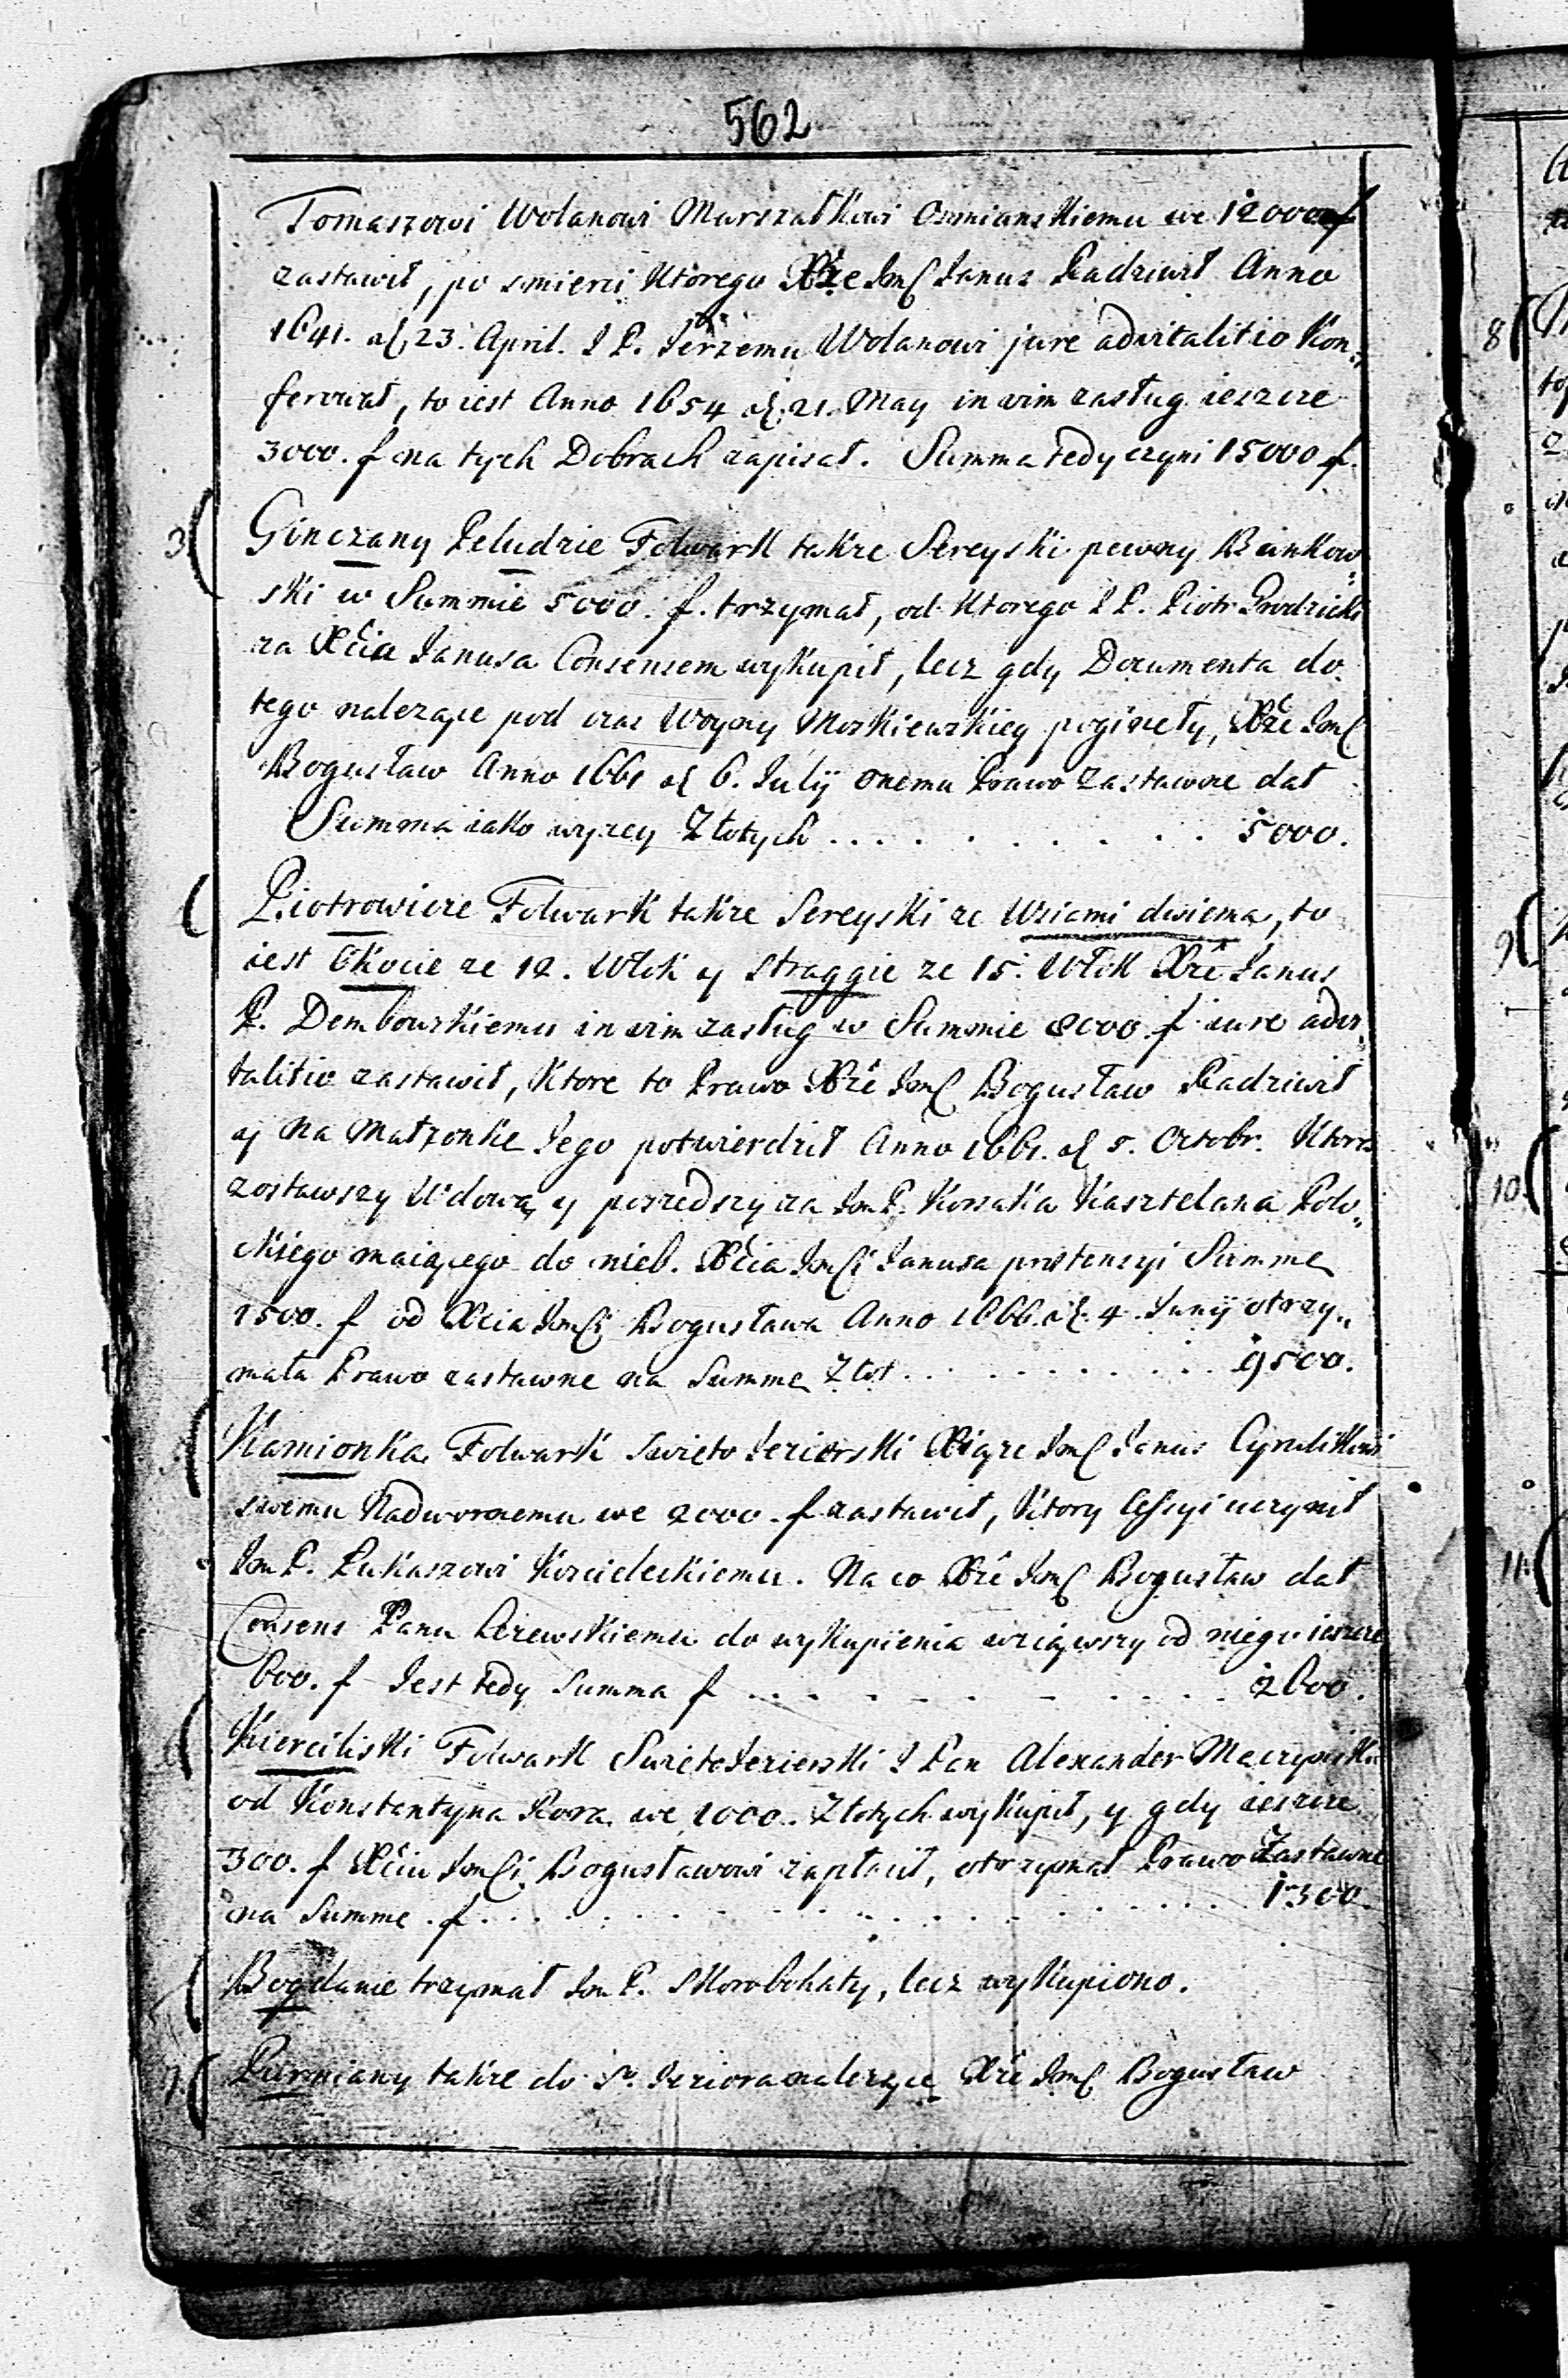 562
Tomaszowi Wolanowi Marszałkowi Oszmianskiemu we 12000 f
zastawił, po smierci Ktorego Xże Jmć Janus Radziwił Anno
1641. d. 23. April. J P. Jerzemu Wolanowi jure advitalitio Kon„
ferował, to iest Anno 1654 d. 21. May in vim zasług ieszcze
3000. f na tych Dobrach zapisał. Summa tedy czyni 15000 f.
3( Ginczany Peludzie Folwark takze Sereyski pewny Bainkow„
ski w Summie 5000. f. trzymał, od Ktorego J P. Piotr Grodzicki
za Xcia Janusa Consensem wykupił, lecz gdy Documenta do
tego nalezące pod czas Woyny Moskiewskiey poginęły, Xże Jmć
Bogusław Anno 1661 d 6. July onemu Prawo zastawne dał
Summa iako wyzey Złotych . . . . . . . . . 5000.
( Piotrowicze Folwark takze Sereyski ze Wsiami dwiema, to
iest Okocie ze 12. Włok y Straggie ze 15. Włok Xże Janus
P. Dembowskiemu in vim zasług w Summie 8000. f iure advi„
talitio zastawił, Ktore to Prawo Xże Jmć Bogusław Radziwił
y na Małzonke Jego potwierdził Anno 1661. d 5. Octobr. Ktora
zostawszy Wdową y poszedszy za Jm P. Korsaka Kasztelana Poło„
ckiego maiącego do nieb. Xcia Jmći Janusa prætensyi Summę
1500. f od Xcia Jmći Bogusława Anno 1666. d. 4. Junÿ otrzy„
mała Prawo zastawne na Summę Złot . . . . . . . . . 9500.
( Kamionka Folwark Swięto Jezierski Xiąze Jmć Janus Cyrulikowi
swemu Nadwornemu we 2000. f zastawił, Ktory Cessyi uczynił
Jm P. Łukaszowi Koscieleckiemu. Na co Xże Jmć Bogusław dał
Consens Panu do wykupienia wziąwszy od niego ieszcze
600. f Jest tedy Summa f . . . . . . . . . 2600.
6( Kierciliski Folwark Swięto Jezierski J Pan Alexander
od Konstantyna we 1000. Złotych wykupił, y gdy ieszcze
300. f Xciu Jmći Bogusławowi zapłacił, otrzymał Prawo Zastawne
na Summe. f . . . . . . . . . 1300.
( Bogdanie trzymał Jm P. Skorobohaty, lecz wykupiono.
7( Purwiany takze do Sw. Jeziora nalezące Xże Jmć Bogusław
8(
9(
10(
11.(